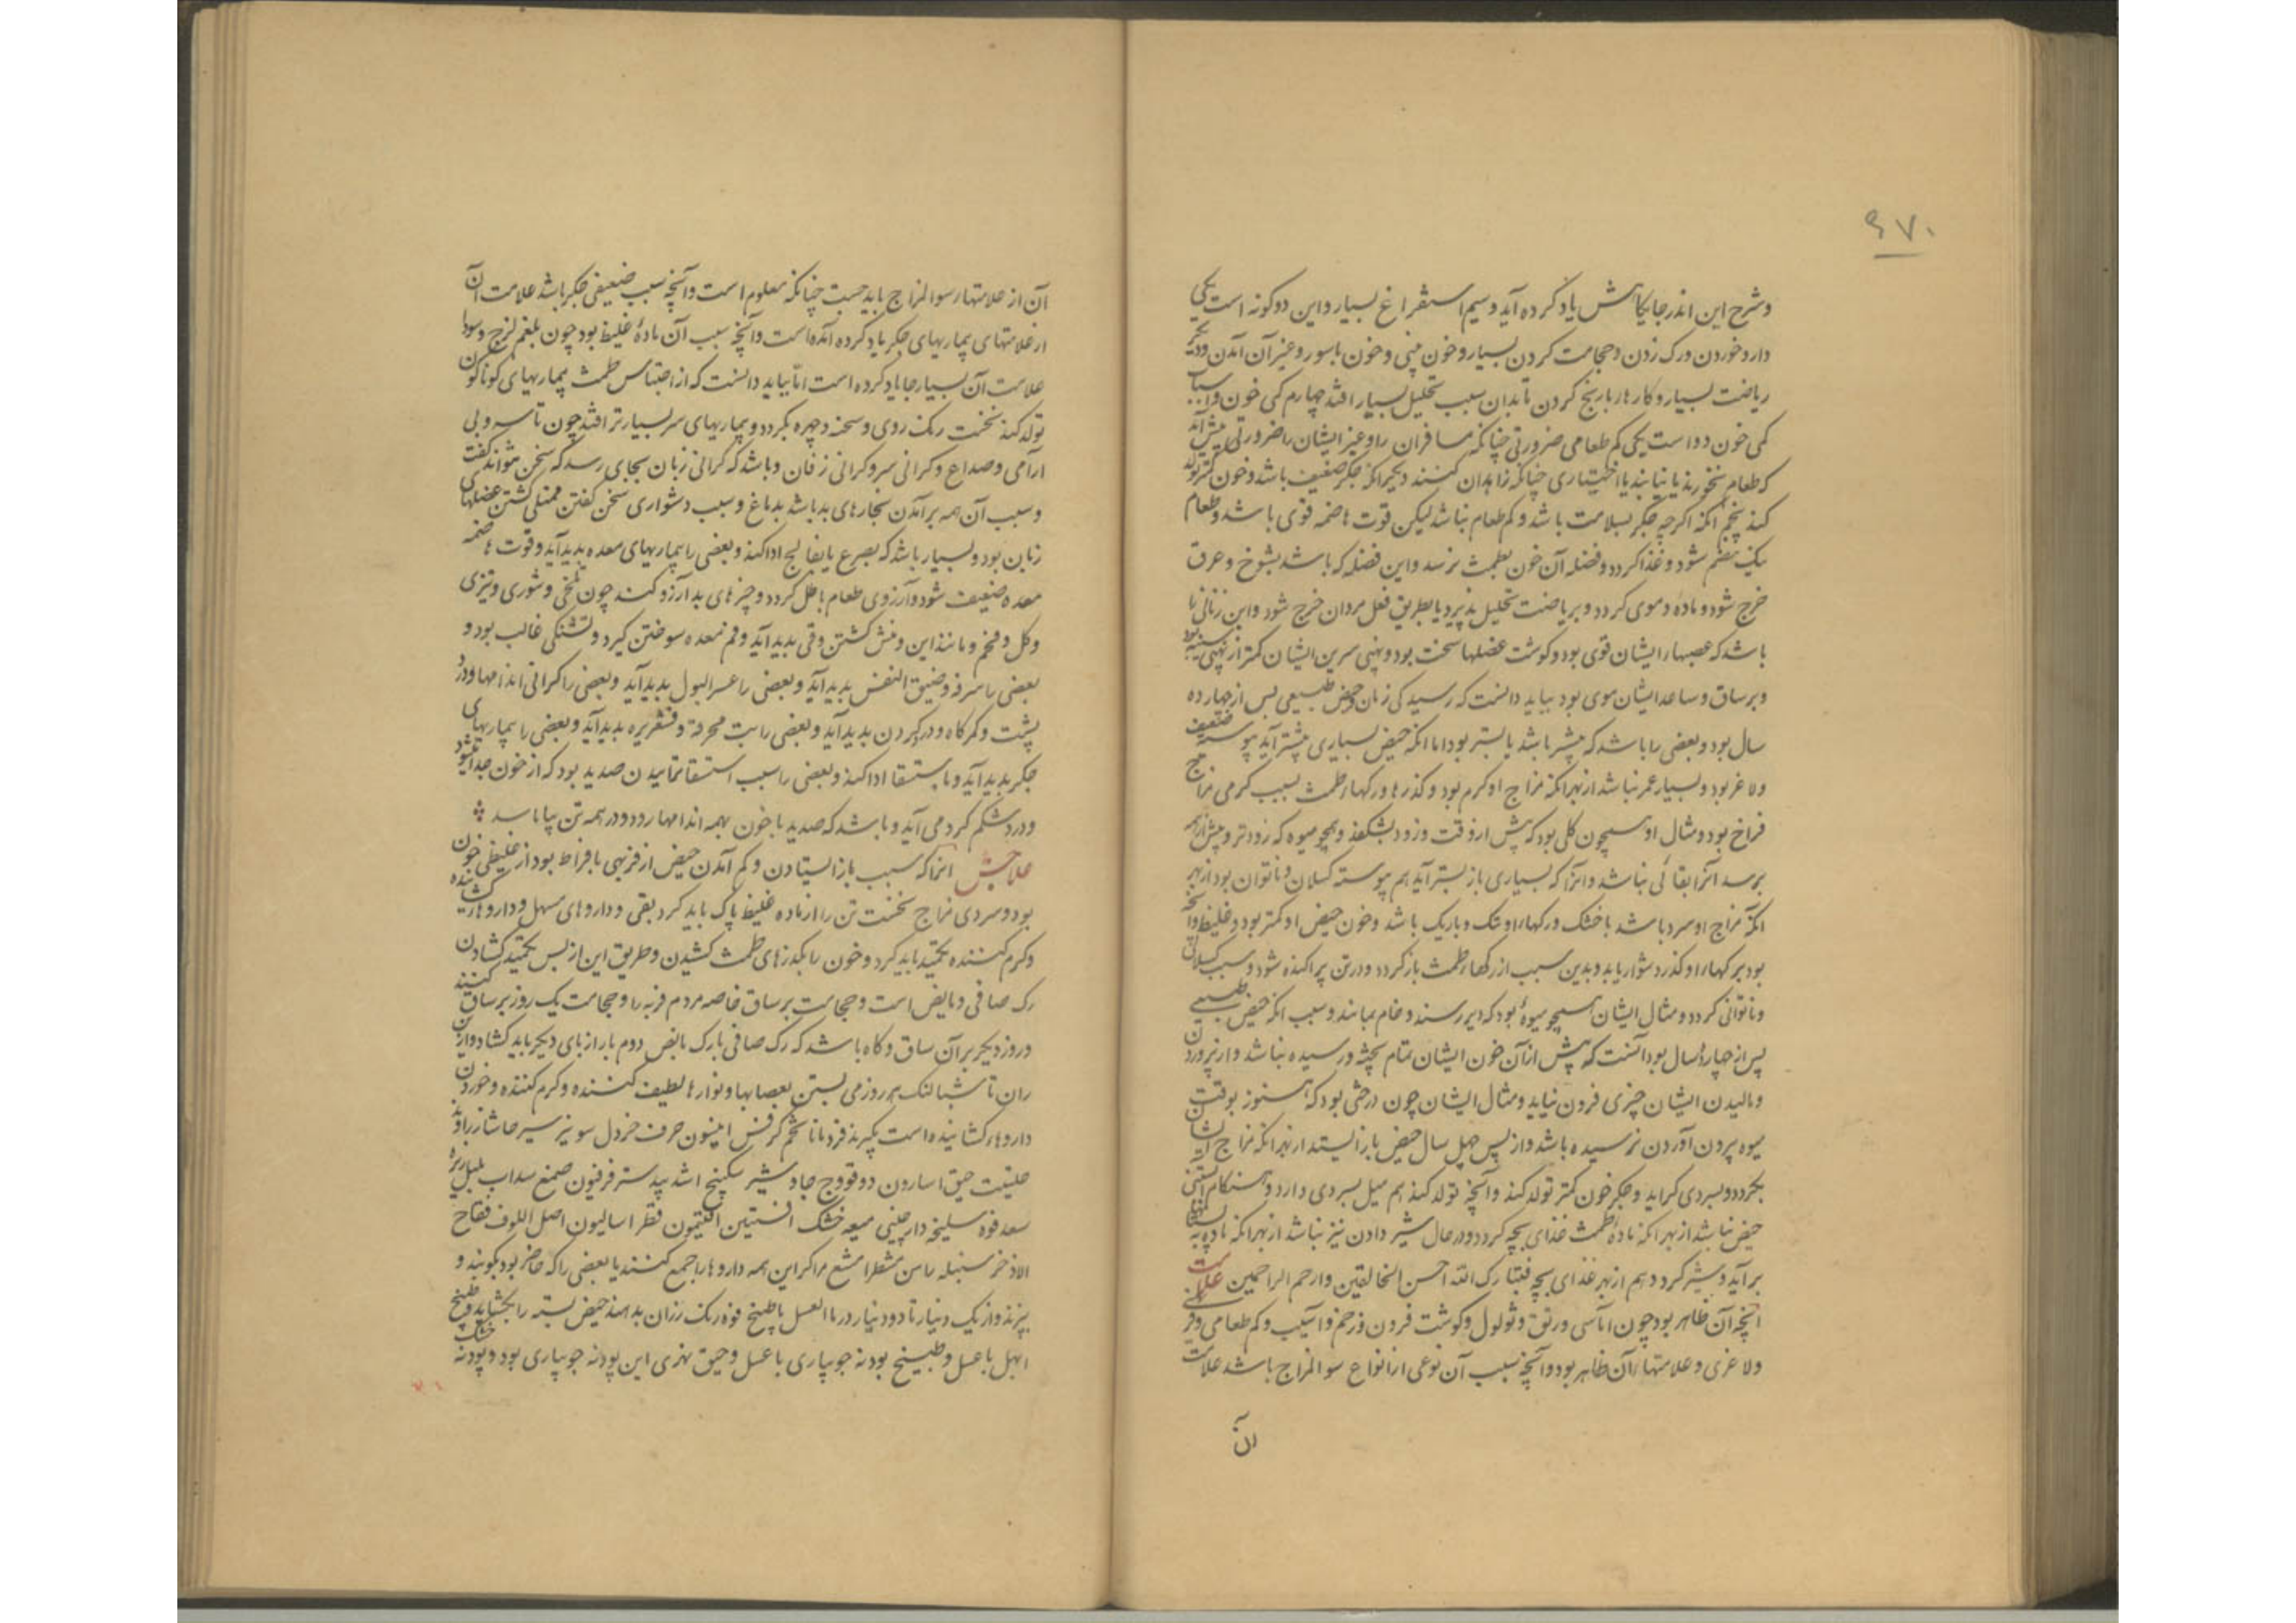 ۹۷۰
وشرح این اندر جایگاهش یاد کرده آید وسیم استفراغ بسیار واین دو کونه است یکی
دارو خوردن ورک زدن وحجامت کردن بسیار وخون بینی وخون باسور وغیر آن آمدن ودیگر
ریاضت بسیار وکارها با رنج کردن تا بدان سبب تحلیل بسیار افتد چهارم کمی خون واسباب
کمی خون دو است یکی کم طعامی ضرورتی چنانکه مسافران را وغیر ایشان را ضرورتی پیش آید
که طعام نخورند یا نیابند یا اختیاری چنانکه زاهدان کنند دیگر انکه جکر ضعیف باشد وخون کمتر تولد
کند پنجم انکه اکرچه جکر بسلامت باشد وکم طعام نباشد لیکن قوت هاضمه قوی باشد وطعام
نیک هضم شود وغذا کردد وفضله آن خون بطمث نرسد واین فضله که باشد بشوخ وعرق
خرج شود وماده وموی کردد وبریاضت تحلیل پذیرد یا بطریق فعل مردان خرج شود واین زنانی را
باشد که عصبهاء ایشان قوی بود وکوشت عضلها سخت بود وپهنی سرین ایشان کمتر از پهنی سینه بود
وبر ساق وساعد ایشان موی بود بباید دانست که رسیدکی زنان وحیض طبیعی پس از چهارده
سال بود وبعضی را باشد که پیشتر باشد یا پستر بود اما انکه حیض بسیاری پیشتر آید پیوسته ضعیف
ولاغر بود وبسیار عمر نباشد از بهر انکه مزاج او کرم بود وکذرها ورکهاء طمث بسبب کرمی مزاج
فراخ بود ومثال او همچون کلی بود که پیش از وقت وزود بشکفد وهمچو میوه که زودتر وپیش از همه
برسد انرا بقائی نباشد وانرا که بسیاری باز پستر آید هم پیوسته کسلان وناتوان بود از بهر
انکه مزاج او سرد باشد یا خشک ورکهاء او تنک وباریک باشد وخون حیض او کمتر بود وغلیظ وآنچه
بود بر کهاء او کذر دشوار یابد وبدین سبب از رکهاء طمث باز کردد ودر تن پراکنده شود وسبب کسلانی
وناتوانی کردد ومثال ایشان همچو میوهٔ بود که دیر رسند وخام بمانند وسبب انکه حیض طبیعی
پس از چهارده سال بود آنست که پیش از آن خون ایشان تمام پخته ورسیده نباشد واز پرورش تن
وبالیدن ایشان چیزی فزون نیاید ومثال ایشان چون درختی بود که هنوز بوقت
میوه بیرون آوردن نرسیده باشد واز پس چهل سال حیض باز ایستد از بهر انکه مزاج ایشان
بگردد وبسردی کراید وجکر خون کمتر تولد کند وآنچه تولد کند هم میل بسردی دارد وهنکام آبستنی
حیض نباشد از بهر انکه مادهٔ طمث غذای بچه کردد ودر حال شیر دادن نیز نباشد از بهر انکه ماده به پستانها
برآید وشیر کردد هم از بهر غذای بچه فتبارک الله احسن الخالقین وارحم الراحمین علامت
آنچه آن ظاهر بود چون آماسی ورتق وثولول وکوشت فزون وزخم وآسیب وکم طعامی وفربهی
ولاغری وعلامتهاء آن ظاهر بود وآنچه بسبب آن نوعی از انواع سوء المزاج باشد علامت
آن
آن از علامتهاء سوء المزاج باید جست چنانکه معلوم است وآنچه سبب ضعیفی جکر باشد علامت آن
از علامتهای بیماریهای جکر یاد کرده آمده است وآنچه سبب آن مادهٔ غلیظ بود چون بلغم لزج وسودا
علامت آن بسیار جا یاد کرده است امّا بباید دانست که از احتباس طمث بیماریهای کوناکون
تولد کند نخست رنک روی وسحنه وچهره بگردد وبیماریهای سر بسیارتر افتد چون تاسه وبی
آرامی وصداع وکرانی سر وکرانی زفان وباشد که کرانی زبان بجای رسد که سخن نتواند کفت
وسبب آن همه برآمدن بخارهای بد باشد بدماغ وسبب دشواری سخن کفتن ممتلی کشتن عضلهای
زبان بود وبسیار باشد که بصرع یا بفالج ادا کند وبعضی را بیماریهای معده پدید آید وقوت هاضمه
معده ضعیف شود وآرزوی طعام باطل کردد وچیزهای بد آرزو کند چون تلخی وشوری وتیزی
وکل وفحم ومانند این ومنش کشتن وقی پدید آید وفم معده سوختن کیرد وتشنکی غالب بود و
بعضی را سرفه وضیق النفس پدید آید وبعضی را عسر البول پدید آید وبعضی را کرانی اندامها ودرد
پشت وکمرکاه ودرد کردن پدید آید وبعضی را تب محرقه وقشعریره پدید آید وبعضی را بیماریهای
جکر پدید آید وباستسقا ادا کند وبعضی را سبب استسقا تمامیدن صدید بود که از خون جدا میشود
ودر شکم کرد می آید وباشد که صدید با خون بهمه اندامها رود ودر همه تن بیاماسد
علاجش انرا که سبب باز ایستادن وکم آمدن حیض از فربهی بافراط بود از غلیظی خون
بود وسردی مزاج نخست تن را از ماده غلیظ پاک باید کرد بقی وداروهای مسهل وداروهاء کشاینده
وکرم کننده بختید باید کرد وخون را بکذرهای طمث کشیدن وطریق این از پس تختید کشادن
رک صافن ومابض است وحجامت بر ساق خاصه مردم فربه را وحجامت یک روز بر ساق کنند
وروز دیگر بر آن ساق وکاه باشد که رک صافن با رک مابض دوم بار از پای دیگر باید کشاد واز بن
ران تا شتالنک هر روز می بستن بعصابها ونوارها لطیف کننده وکرم کننده وخوردن
داروهاء کشاینده است بگیرند فردمانا تخم کرفس انیسون حرف خردل سوینز سیر حاشا زراوند
حلتیت حبق اسارون دوقو وج جاوشیر سکبینج اشد بیدستر فرفیون صمغ سداب بلبل زیره
سعد فوه سلیخه دارچینی میعه خشک افسنتین افتیمون فطراسالیون اصل اللوف فقاح
الاذخر سنبله رامن مشطرا مشع مر اکر این همه داروها را جمع کنند یا بعضی را که حاضر بود بکوبند و
بپزند واز یک دینار تا دو دینار در ماء العسل یا طبیخ فوه رنک رزان بدهند حیض بسته را بکشاید وطبیخ
ابهل با عسل وطبیخ بودنه جویباری با عسل وحبق نهری این پودنه جویباری بود وپودنه خشک